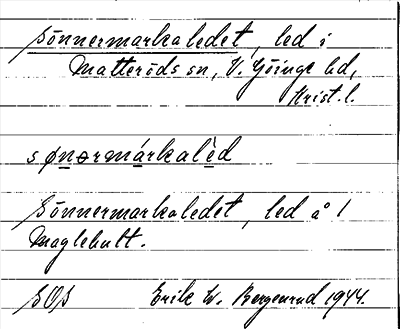 Sönnermarkaledet, led i
Matteröds sn, V. Göinge hd,
Krist. l.
sønərmárkalèd
Sönnermarkaledet, led å 1
Maglehult.
SOS Erik W. Bergenrud 1944.